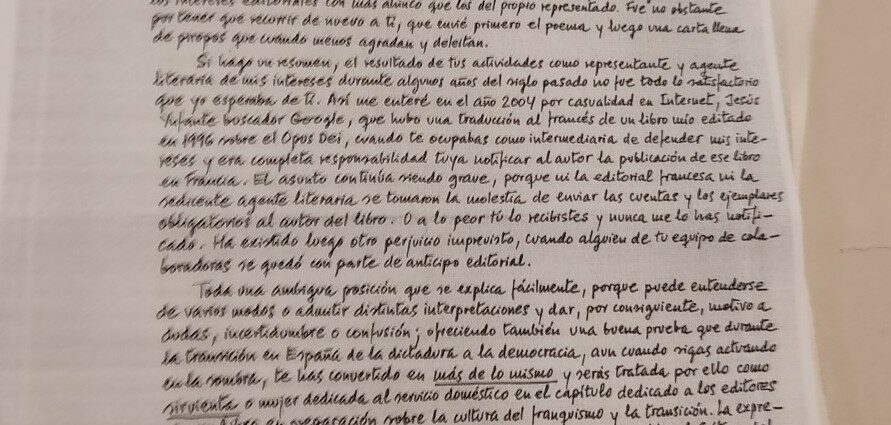 los intereses editoriales con más ahinco que los del propio representado. Fue no obstante
por tener que recorrir de nuevo a ti, que envié primero el poema y luego una carta llena
de piropos que cuando menos agradan y deleitan.
Si hago un resumen, el resultado de tus actividades como representante y agente
literaria de mis intereses durante algunos años del siglo pasado no fue todo lo satisfactorio
que yo esperaba de ti. Así me enteré en el año 2004 por casualidad en Internet, Jesús
Ynfante buscador Google, que hubo una traducción al francés de un libro mío editado
en 1996 sobre el Opus Dei, cuando te ocupabas como intermediaria de defender mis inte-
reses y era completa responsabilidad tuya notificar al autor la publicación de ese libro
en Francia. El asunto continúa siendo grave, porque ni la editorial francesa ni la
sedicente agente literaria se tomaron la molestia de enviar las cuentas y los ejemplares
obligatorios al autor del libro. O a lo peor tú lo recibistes y nunca me lo has notifi-
cado. Ha existido luego otro perjuicio imprevisto, cuando alguien de tu equipo de cola-
boradoras se quedó con parte de anticipo editorial.
Toda una ambigua posición que se explica fácilmente, porque puede entenderse
de varios modos o admitir distintas interpretaciones y dar, por consiguiente, motivo a
dudas, incertidumbre o confusión; ofreciendo también una buena prueba que durante
la transición en España de la dictadura a la democracia, aun cuando sigas actuando
en la sombra, te has convertido en más de lo mismo y serás tratada por ello como
sirvienta o mujer dedicada al servicio doméstico en el capítulo dedicado a los editores
en preparación sobre la cultura del franquismo y la transición. La expre-